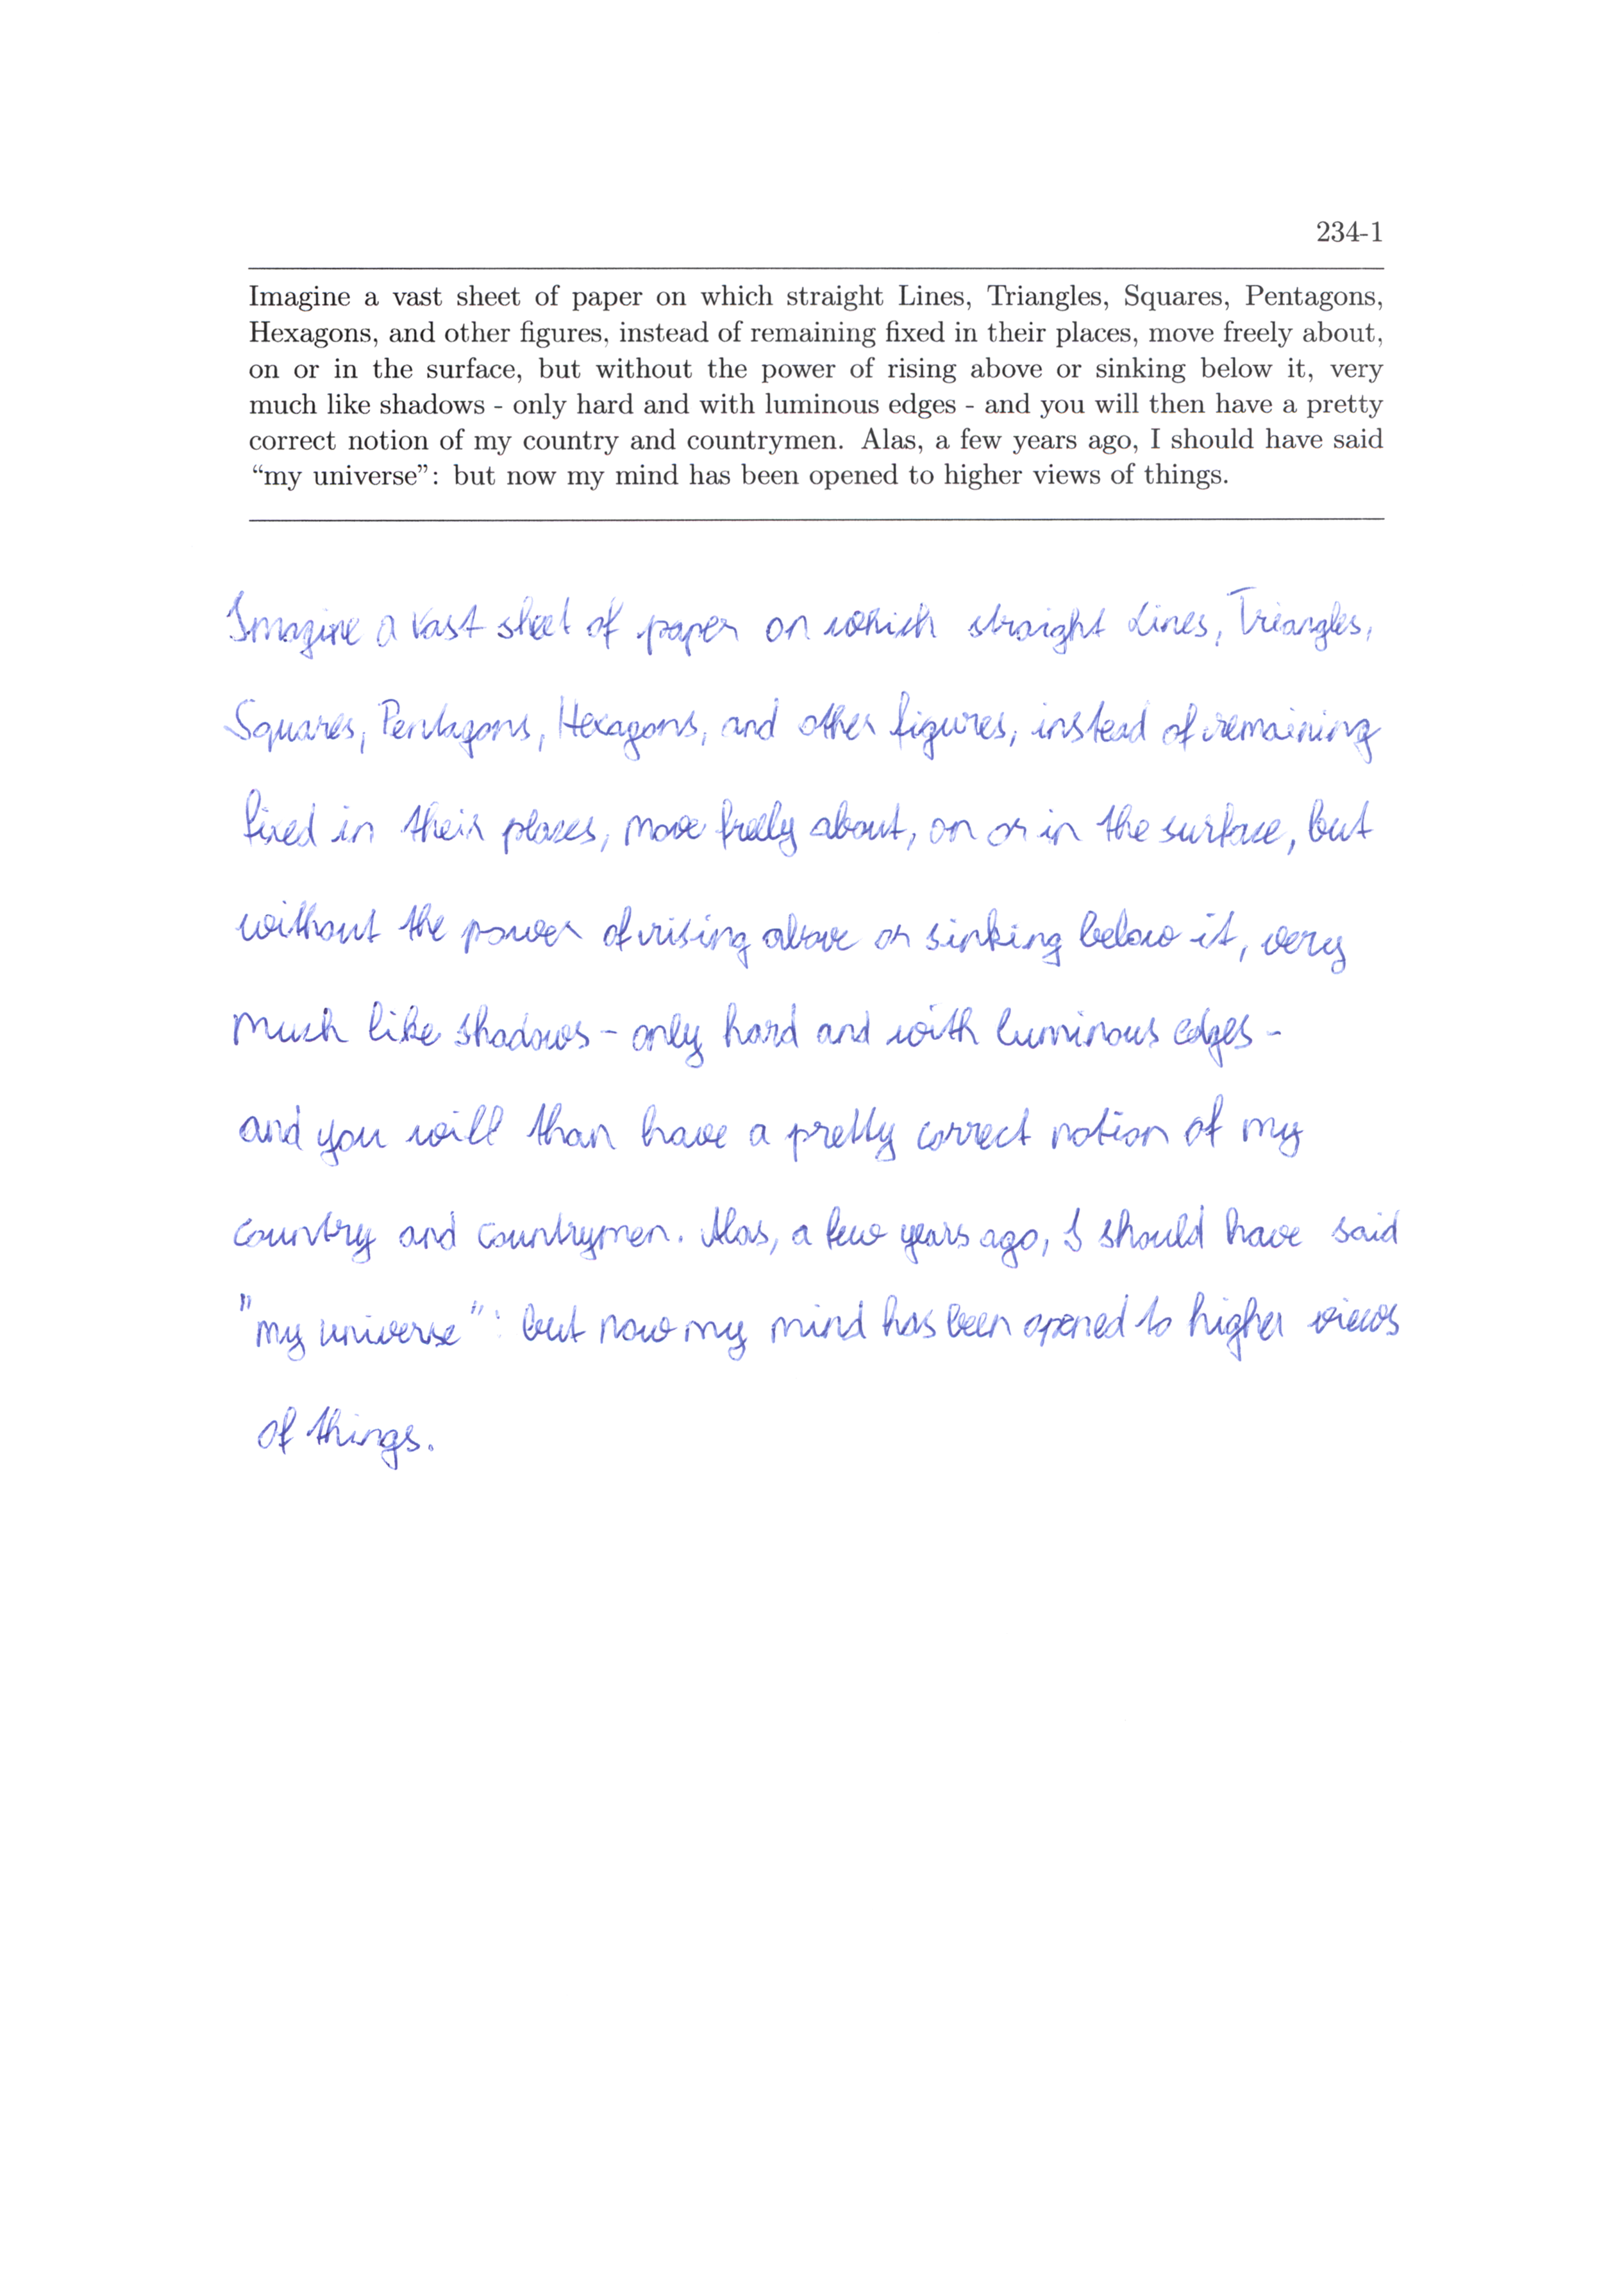 234-1
Imagine a vast sheet of paper on which straight Lines, Triangles, Squares, Pentagons,
Hexagons, and other figures, instead of remaining fixed in their places, move freely about,
on or in the surface, but without the power of rising above or sinking below it, very
much like shadows - only hard and with luminous edges - and you will then have a pretty
correct notion of my country and countrymen. Alas, a few years ago, I should have said
“my universe”: but now my mind has been opened to higher views of things.
Imagine a vast sheet of paper on which straight Lines, Triangles,
Squares, Pentagons, Hexagons, and other figures, instead of remaining
fixed in their places, move freely about, on or in the surface, but
without the power of rising above or sinking below it, very
much like shadows - only hard and with luminous edges -
and you will than have a pretty correct notion of my
country and countrymen. Alas, a few years ago, I should have said
"my universe": but now my mind has been opened to higher views
of things.